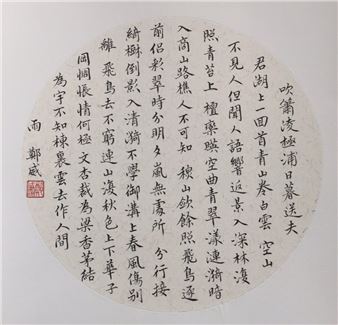 吹簫淩極浦日暮送夫
君湖上一回首青山卷白雲 空山
不見人但聞人語響返景入深林復
照青苔上 檀欒暎空曲青翠漾漣漪暗
入商山路樵人不可知 秋山斂餘照飛鳥逐
前侶彩翠時分明夕嵐無處所 分行接
綺樹倒影入清漪不學御溝上春風傷別
離 飛鳥去不窮連山復秋色上下華子
岡惆悵情何極文杏裁為梁香茅結
為宇不知棟裏雲去作人間
雨 鄭威